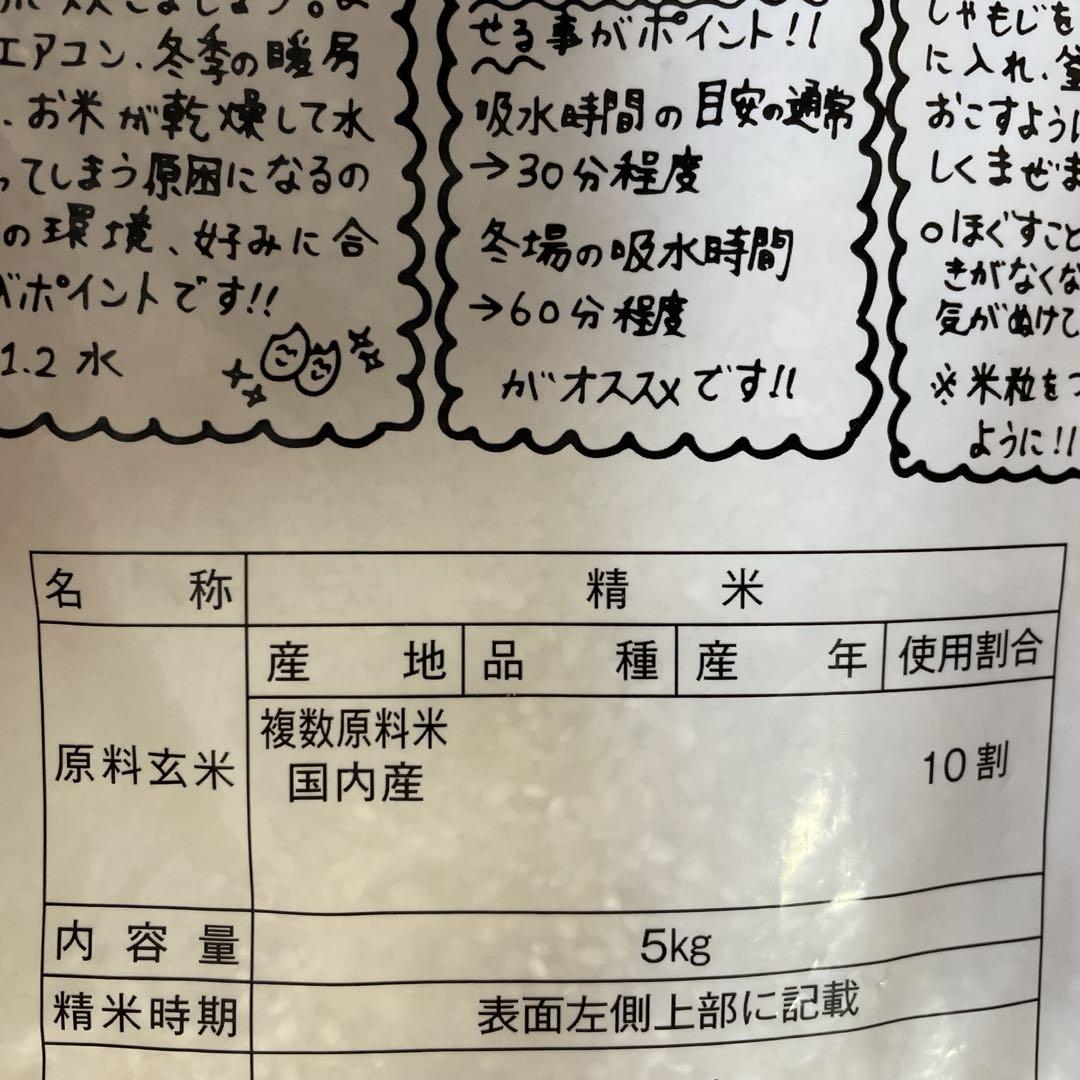 エアコン、冬季の暖房
、お米が乾燥して水
ってしまう原因になるの
の環境、好みに合
がポイントです!!
1.2 水
せる事がポイント!!
吸水時間の目安の通常
→30分程度
冬場の吸水時間
→60分程度
がオススメです!!
しゃもじを
に入れ、釜
おこすように
しくまぜま
○ほぐすこと
きがなくな
気がぬけて
※米粒をつ
ように!!
名称 精米
産地 品種 産年 使用割合
原料玄米 複数原料米
国内産 10割
内容量 5kg
精米時期 表面左側上部に記載